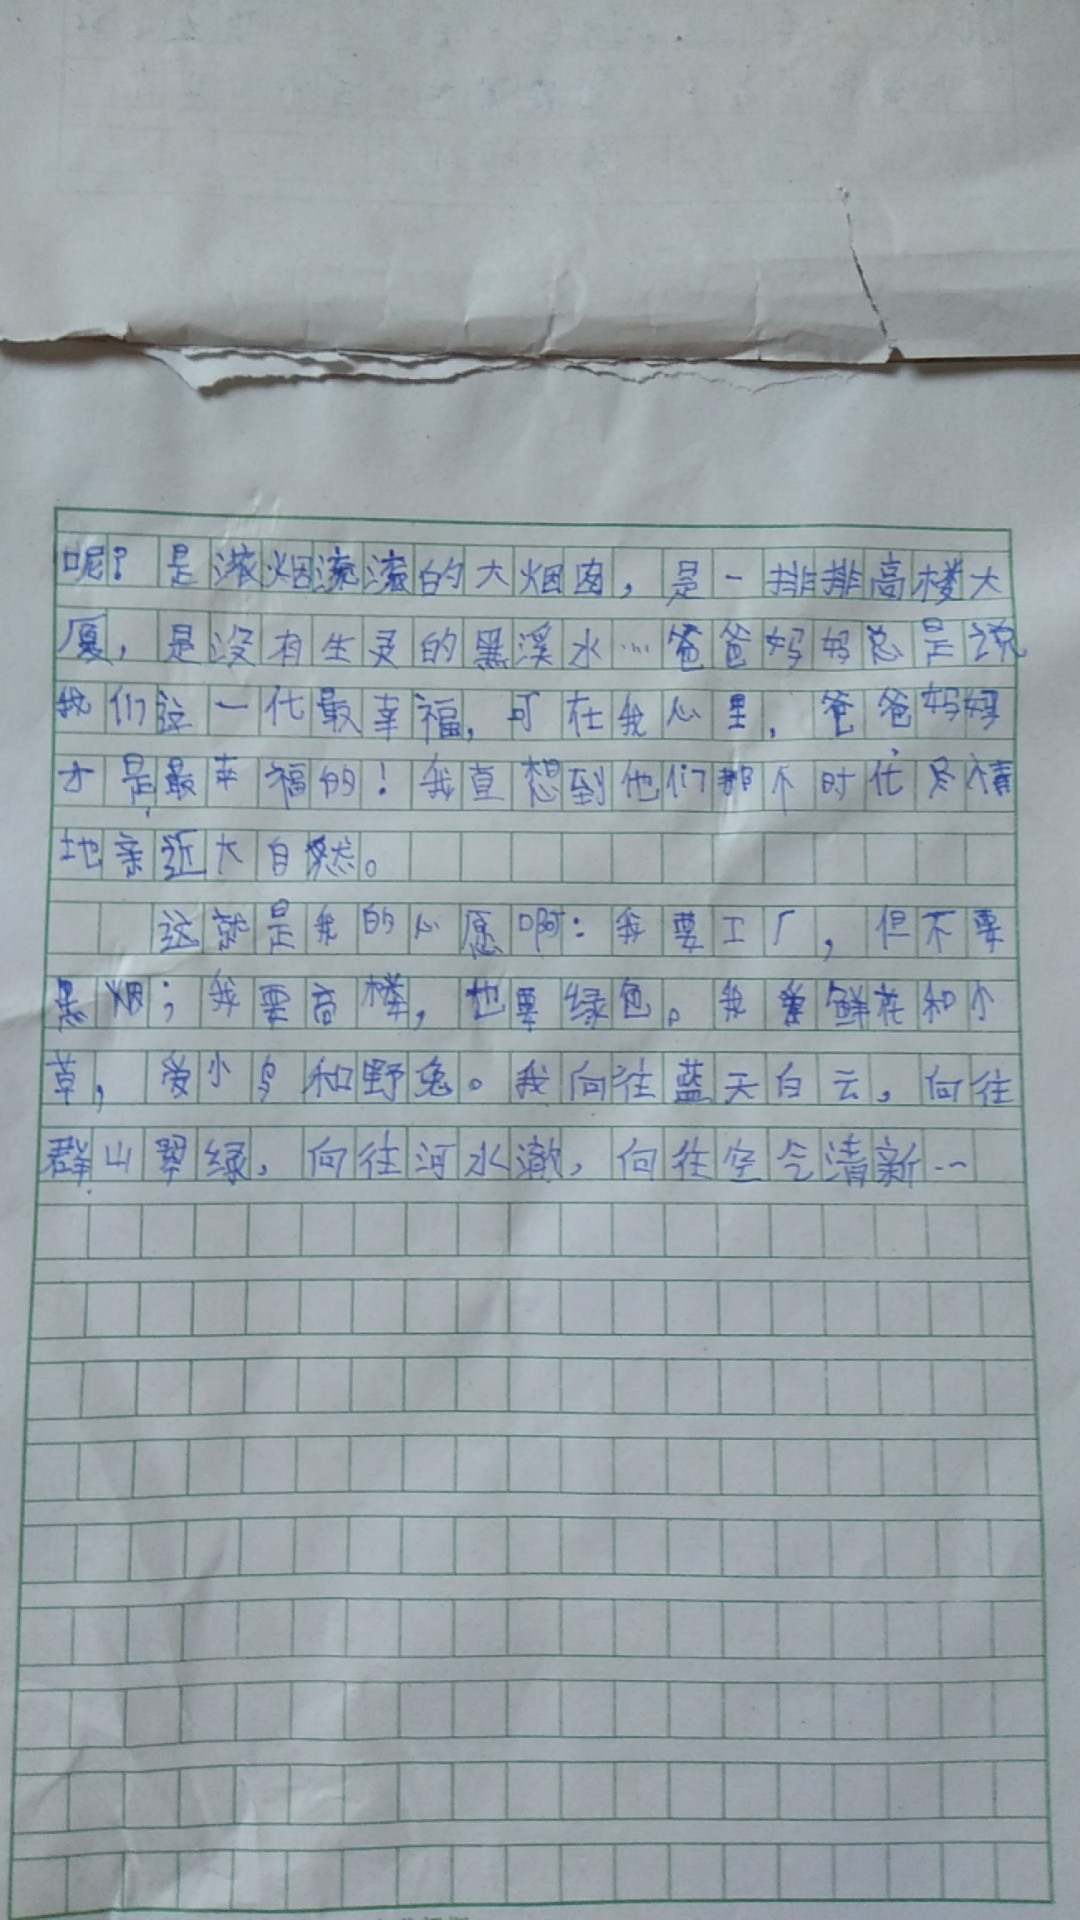 呢？是滚烟滚滚的大烟囱，是一排排高楼大
厦，是没有生灵的黑溪水…爸爸妈妈总是说
我们这一代最幸福，可在我心里，爸爸妈妈
才是最幸福的！我真想到他们那个时代尽情
地亲近大自然。
这就是我的心愿啊：我要工厂，但不要
黑烟；我要高楼，也要绿色。我爱鲜花和小
草，爱小鸟和野兔。我向往蓝天白云，向往
群山翠绿，向往河水澈，向往空气清新…